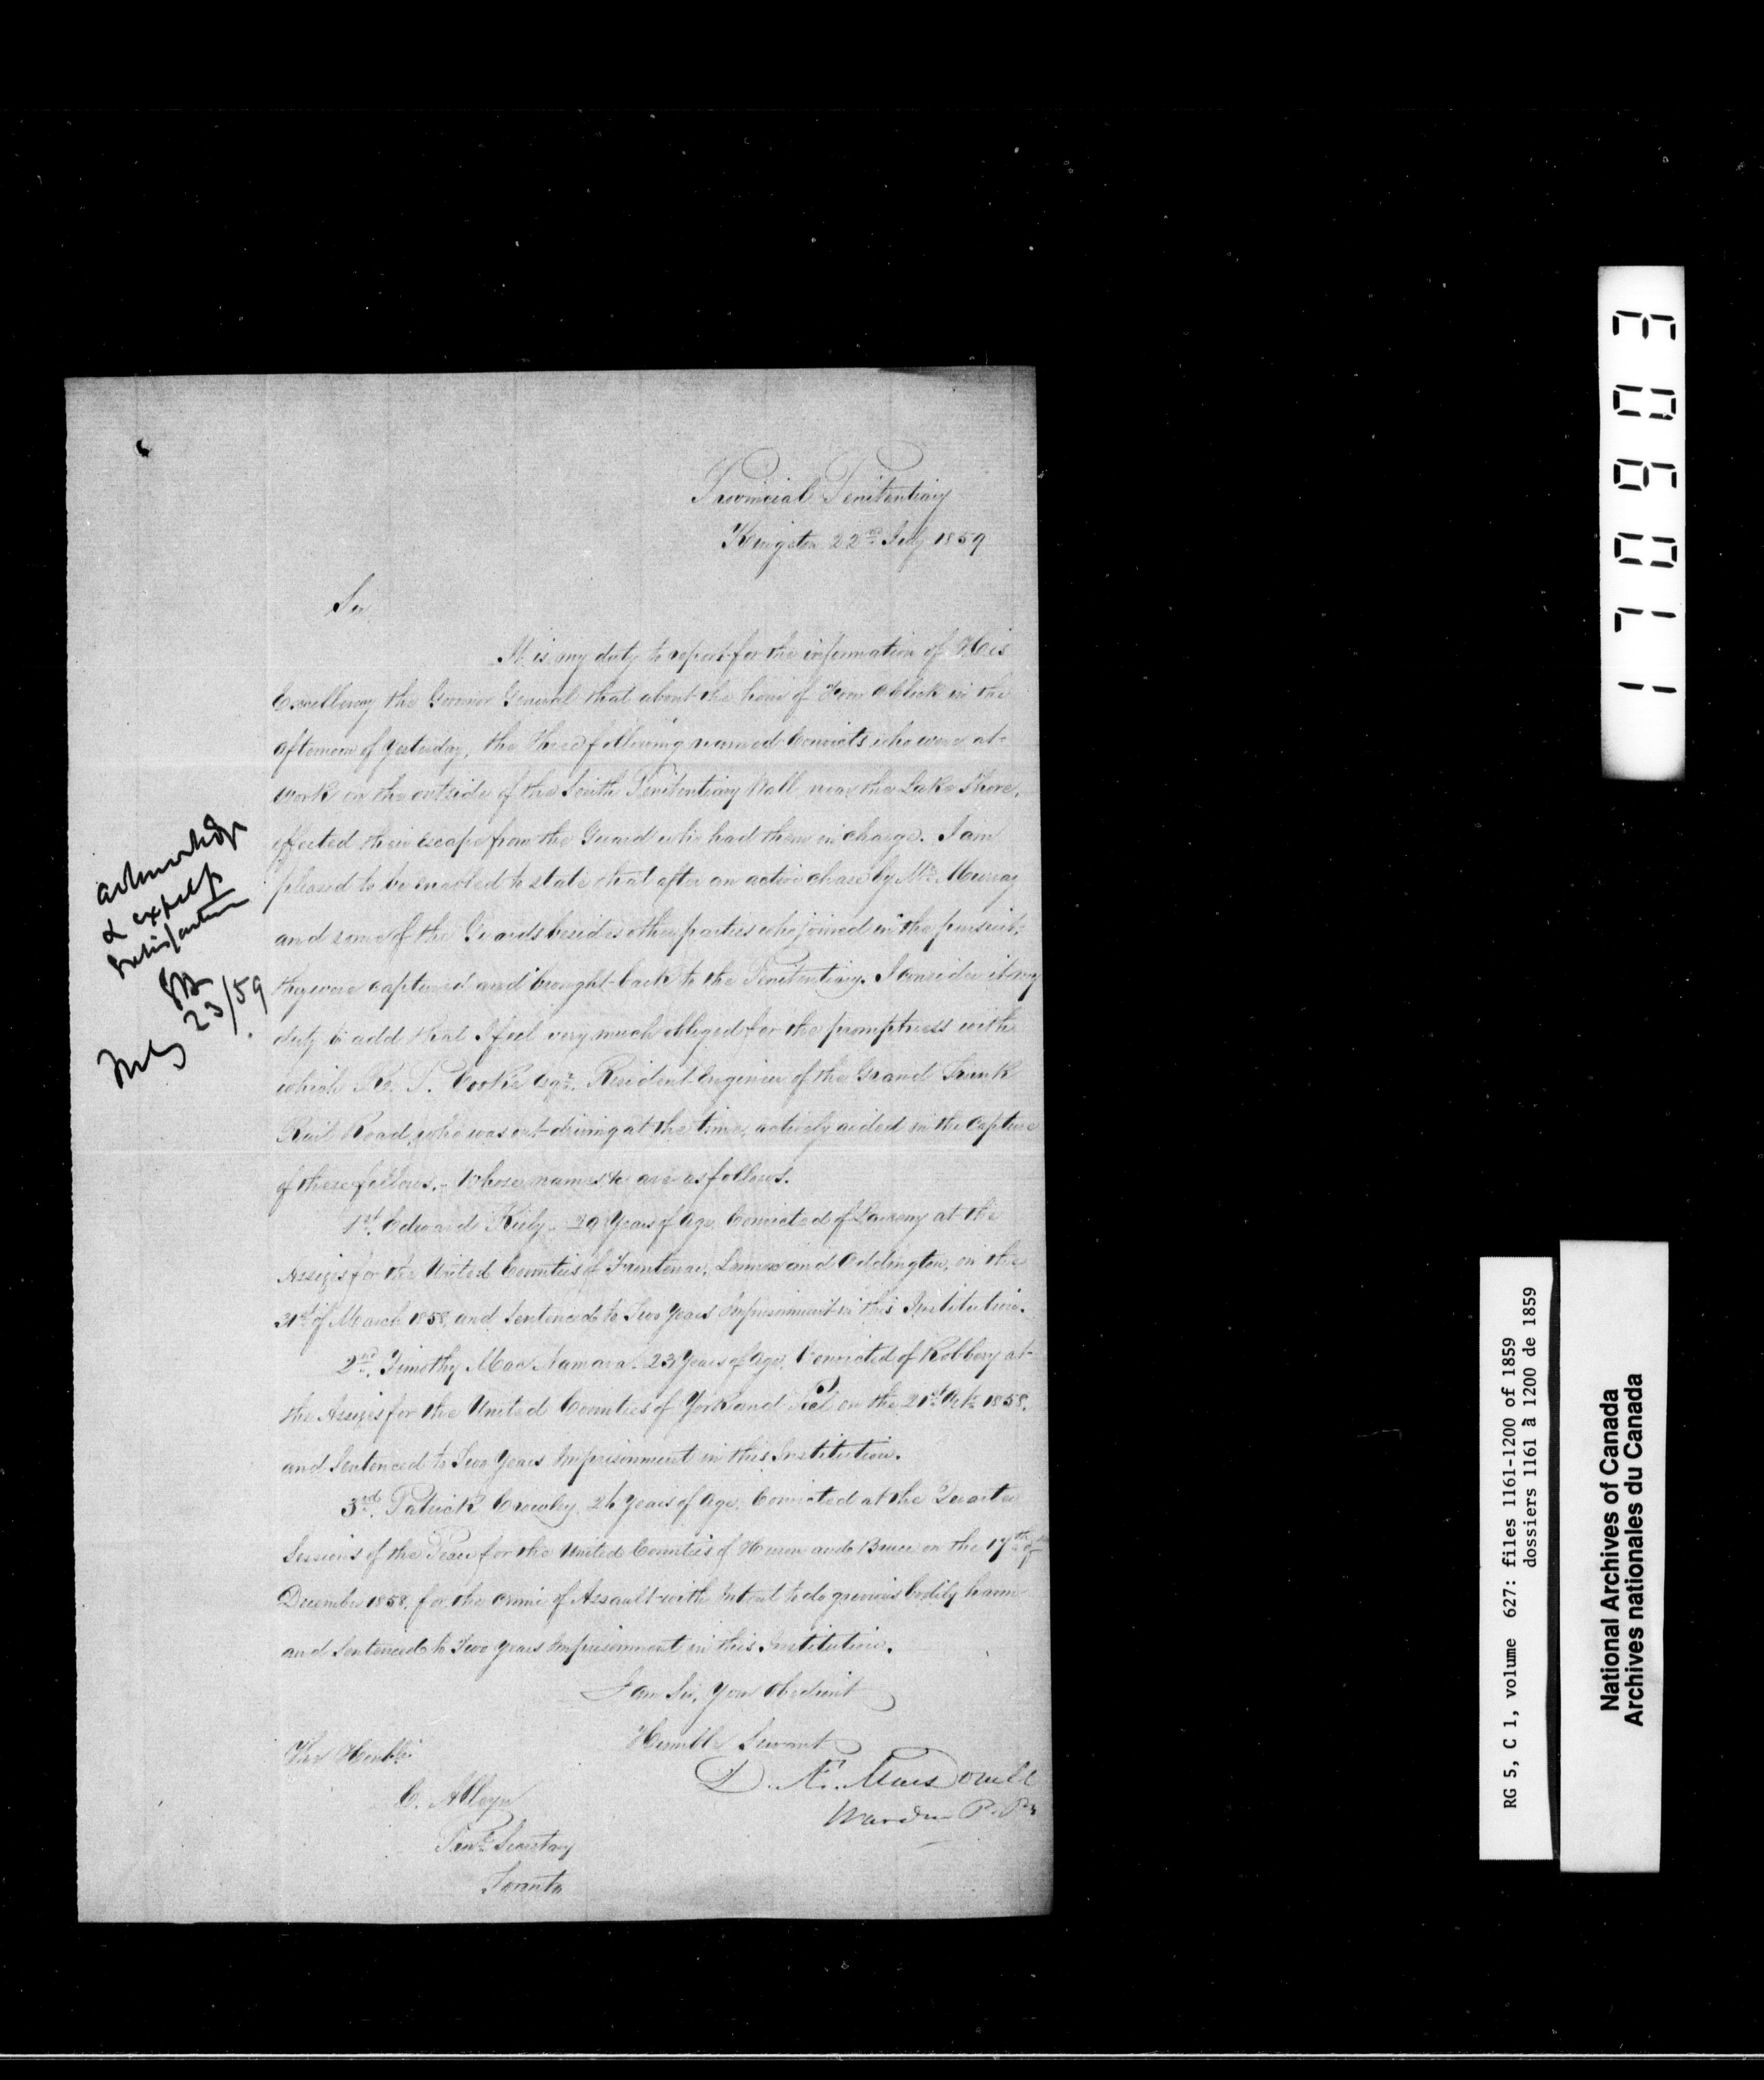 Provincial Penitentiary
Kingston 22nd July 1859
Sir
It is my duty to report for the information of His
Excellency the Governor General that about the hour of Four oClock in the
afternoon of yesterday, the Three following named Convicts who were at
work on the outside of the South Penitentiary Wall near the Lake Shore,
effected their escape from the Guard who had them in charge. I am
pleased to be enabled to state that after an active chase by Mr. Murray
and some of the Guards besides other parties who joined in the pursuit,
they were captured and brought back to the Penitentiary. I consider it my
duty to add that I feel very much obliged for the promptness with
which Cooke Esqr. Resident Engineer of the Grand Trunk
Rail Road, who was out driving at the time, actively aided in the Capture
of these fellows. - Whose names &c are as follows.
1st. Edward Kiely. 29 Years of Age, Convicted of Larceny at the
Assizes for the United Counties of Frontenac, Lennox and Addington, on the
31st of March 1858, and Sentenced to Two years Imprisonment in this Institution.
2nd. Timothy MacNamara. 23 Years of Age, Convicted of Robbery at
the Assizes for the United Counties of York and Peel on the 21st 1858.
and Sentenced to Two Years Imprisonment in this Institution.
3rd. Patrick Crowley. years of Age, Convicted at the Quarter
Sessions of the Peace for the United Counties of Huron and Bruce on the 17th of
December 1858, for the crime of Assault with Intent to do grievous bodily harm
and Sentenced to Two years Imprisonment in this Institution.
I am Sir, Your Obedient
Humble Servant
D. Æ. MacDonell
Warden P. Py
The Honble.
C. Alleyn
Provl. Secretary
Toronto
acknowledge
& express
satisfaction
July 23/59
170603
RG 5, C 1, volume 627: files 1161-1200 of 1859
dossiers 1161 à 1200 de 1859
National Archives of Canada
Archives nationales du Canada